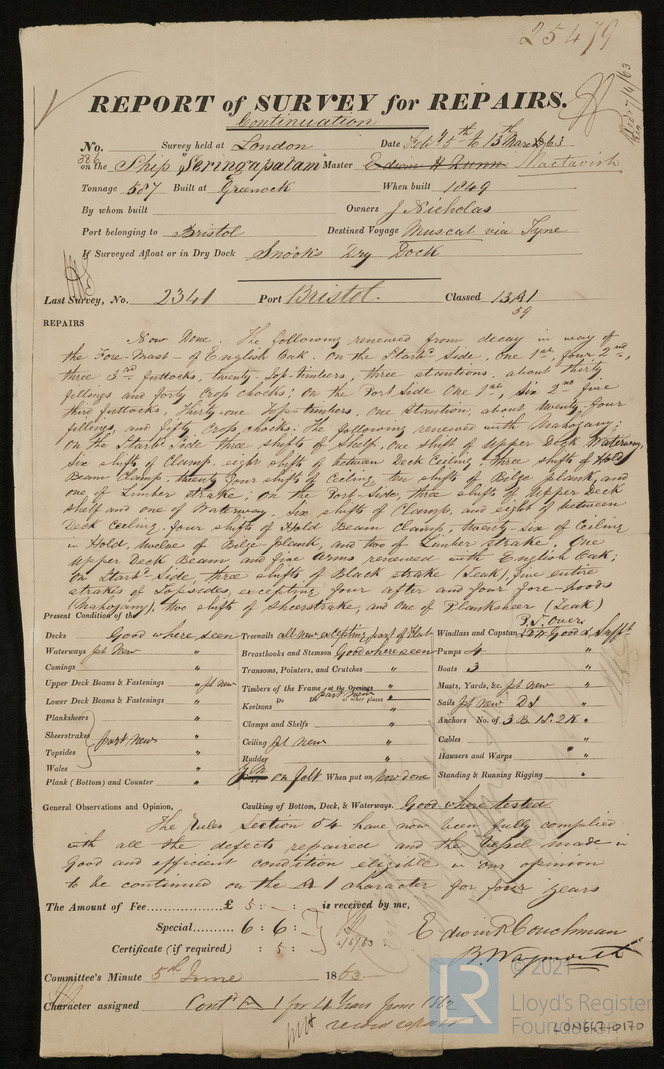 25479
REPORT of SURVEY for REPAIRS.
Continuation
No. 386 Survey held at London Date Feby 5th to 13th March 63
on the Ship "Seringapatam" Master Edwin H Mactavish
Tonnage 587 Built at Greenock When built 1849
By whom built Owners J Nicholas
Port belonging to Bristol Destined Voyage Muscat via Tyne
If Surveyed Afloat or in Dry Dock Snook's Dry Dock
Last Survey, No. 2341 Port Bristol. Classed 13A1
59
REPAIRS
Now Done. The following renewed from decay in way of
the Fore-Mast - of English Oak. On the Starbd Side, One 1st, four 2nd,
three 3rd futtocks, twenty Top-timbers, three stantions, about thirty
fillings and forty Crop chocks; On the Port Side One 1st, Six 2nd five
third futtocks, Thirty-one Top-timbers, One Stantion, about twenty-four
fillings, and fifty Crop chocks. The following renewed with Mahogany;
On the Starbd Side three shifts of Shelf, One shift of Upper Deck Waterway,
Six shifts of Clamp, eight shifts of between Deck Ceiling, three shifts of Hold
Beam Clamp, twenty four shifts of Ceiling, ten shifts of Bilge plank, and
one of Limber strake; On the Port-Side, three shifts of Upper Deck
Shelf and one of Waterway, Six shifts of Clamp, and eight of between
Deck Ceiling, four shifts of Hold Beam Clamp, twenty-six of Ceiling
in Hold, twelve of Bilge plank, and two of Limber Strake. One
Upper Deck Beam and five arms renewed with English Oak;
On Starbd Side, three shifts of Black strake (Teak), five entire
strakes of Topsides, excepting four after and four fore-hoods
(Mahogany), two shifts of Sheerstrake, and one of Planksheer (Teak)
Present Condition of the
Decks Good where seen
Waterways pt New
Comings "
Upper Deck Beams & Fastenings " pt new
Lower Deck Beams & Fastenings "
Planksheers "
Sheerstrakes part new "
Topsides "
Wales "
Plank (Bottom) and Counter "
Treenails all new excepting part of Flat
Breasthooks and Stemson Good where seen
Transoms, Pointers, and Crutches "
Timbers of the Frame at the Openings "
Do part new at other places "
Keelsons "
Clamps and Shelfs "
Ceiling pt new "
Rudder "
Y M on felt When put on Now done
Windlass and Capstan Good & Sufft
Pumps 4
Boats 3
Masts, Yards, &c. pt new "
Sails pt new "
Anchors No. of 3 B 1 S. 2 K "
Cables "
Hawsers and Warps "
Standing & Running Rigging "
General Observations and Opinion, Caulking of Bottom, Deck, & Waterways. Good where tested
The Rules Section 54 have now been fully complied
with all the defects repaired and the Vessel made in
good and efficient condition eligible in our opinion
to be continued on the A 1 character for four years
The Amount of Fee............... £ 5 : - : is received by me,
Special.......... 6 : 6 :
Certificate (if required) : 5 :
Edwin P Couchman
B. Waymouth
Committee's Minute 5th June 1863
Character assigned Contd A 1 for 4 Years from 1862
LR
© 2021
Lloyd's Register
Foundation
LON647-0170